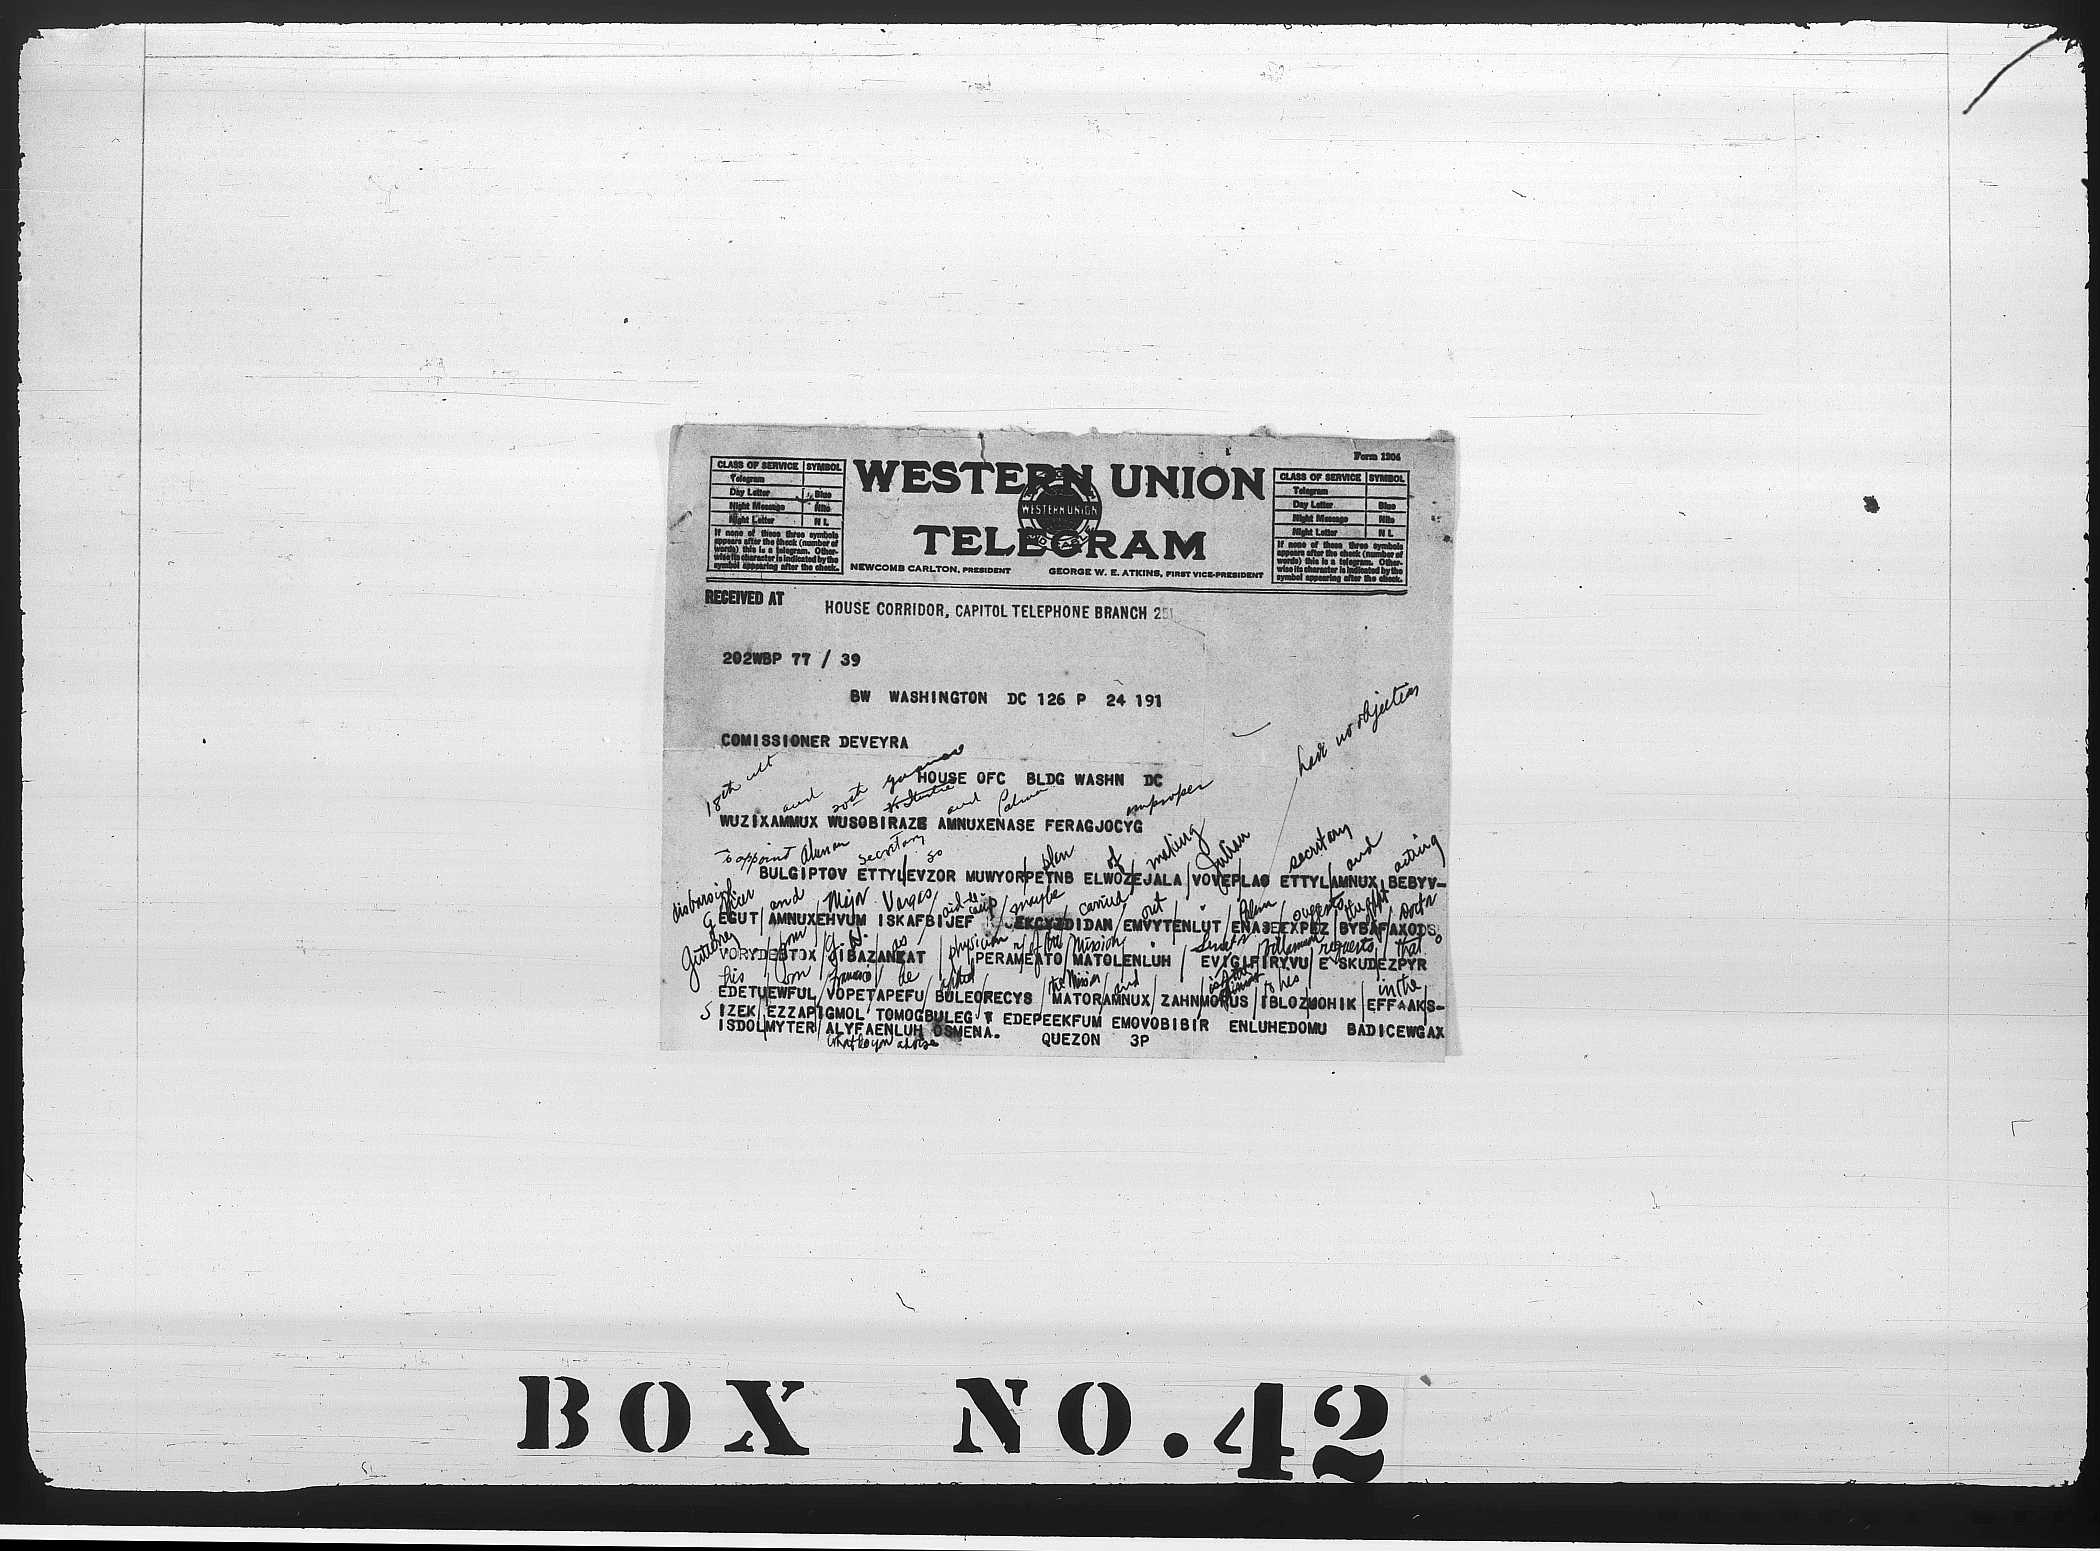 Form 1204
CLASS OF SERVICE SYMBOL
Telegram
Day Letter Blue
Night Message Nite
Night Letter N L
If none of these three symbols
appears after the check (number of
words) this is a telegram. Other-
wise its character is indicated by the
symbol appearing after the check.
WESTERN UNION
WESTERN UNION
TELEGRAM
NEWCOMB CARLTON, PRESIDENT GEORGE W. E. ATKINS, FIRST VICE-PRESIDENT
CLASS OF SERVICE SYMBOL
Telegram
Day Letter Blue
Night Message Nite
Night Letter N L
If none of these three symbols
appears after the check (number of
words) this is a telegram. Other-
wise its character is indicated by the
symbol appearing after the check.
RECEIVED AT
HOUSE CORRIDOR, CAPITOL TELEPHONE BRANCH 251
202WBP 77 / 39
BW WASHINGTON DC 126 P 24 191
have no objection
COMISSIONER DEVEYRA
HOUSE OFC BLDG WASHN DC
18th ult and 20th and Palma improper
WUZIXAMMUX WUSOBIRAZE AMNUXENASE FERAGJOCYG
to appoint secretary so plan of making Julian secretary and acting
BULGIPTOV ETTYLEVZOR MUWYORPETNB ELWOZEJALA VOVEPLAO ETTYLAMNUX BEBYV-
disbursing officer and Major Vargas aid-de camp maybe carried out suggests thought Doctr
GEGUT AMNUXEHVUM ISKAFBIJEF DIDAN EMVYTENLUT ENASEEXPEZ BYBAFAXODS
Gutierrez your as physician of the Mission requests that
VORYDEBTOX JIBAZANKAT PERAMEATO MATOLENLUH EVIGIFIRYVU E SKUDEZPYR
his son Francisco be the Mission and to his in the
EDETUEWFUL VOPETAPEFU BULEORECYS MATORAMNUX ZAHNMOPUS IBLOZMOHIK EFFAAKS-
5 IZEK EZZAPIGMOL TOMOGBULEG EDEPEEKFUM EMOVOBIBIR ENLUHEDOMU BADICEWGAX
ISDOLMYTER ALYFAENLUH OSMENA.
QUEZON 3P
BOX NO.42